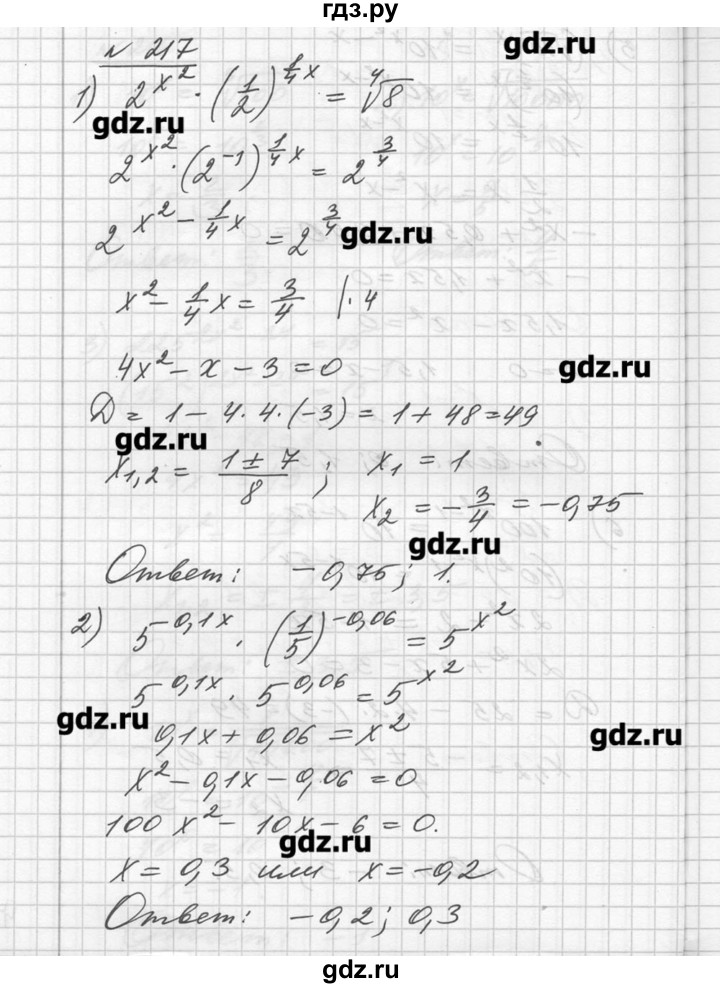 гдз.ру
№ 217
gdz.ru
1) 2^{x^2} · (1/2)^{1/4 x} = ∜8
gdz.ru
2^{x^2} · (2^{-1})^{1/4 x} = 2^{3/4}
2^{x^2 - 1/4 x} = 2^{3/4}
gdz.ru
x^2 - 1/4 x = 3/4 |· 4
4x^2 - x - 3 = 0
gdz.ru
D = 1 - 4 · 4 · (-3) = 1 + 48 = 49
gdz.ru
x_{1,2} = (1 ± 7)/8 ; x_1 = 1
x_2 = -3/4 = -0,75
gdz.ru
Ответ: -0,75; 1.
2) 5^{-0,1x} · (1/5)^{-0,06} = 5^{x^2}
5^{0,1x} · 5^{0,06} = 5^{x^2}
gdz.ru
0,1x + 0,06 = x^2
gdz.ru
x^2 - 0,1x - 0,06 = 0
100x^2 - 10x - 6 = 0.
gdz.ru
x = 0,3 или x = -0,2
Ответ: -0,2; 0,3
gdz.ru